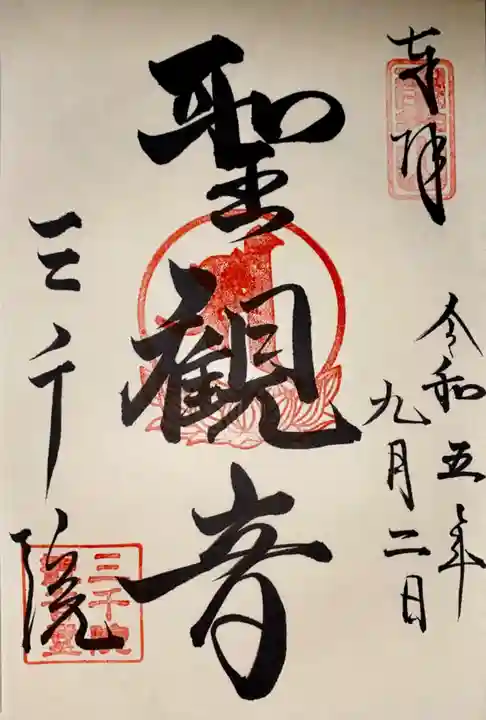 奉拝
令和五年
九月二日
聖観音
三千院
三千院